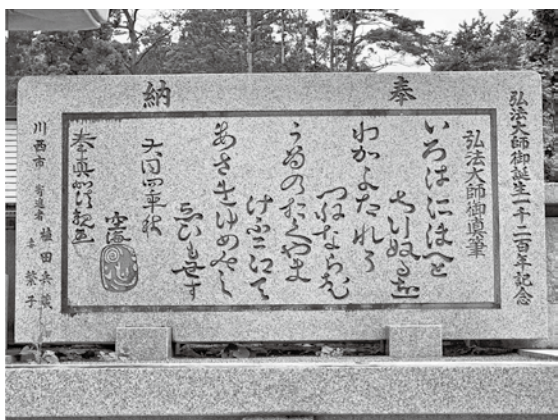 弘法大師御誕生一千二百年記念
奉納
弘法大師御真筆
いろはにほへと
ちりぬるを
わかよたれそ
つねならむ
うゐのおくやま
けふこえて
あさきゆめみし
ゑひもせす
大同四年秋
空海
奉真如法親王
川西市 寄進者 植田兵蔵
妻 繁子